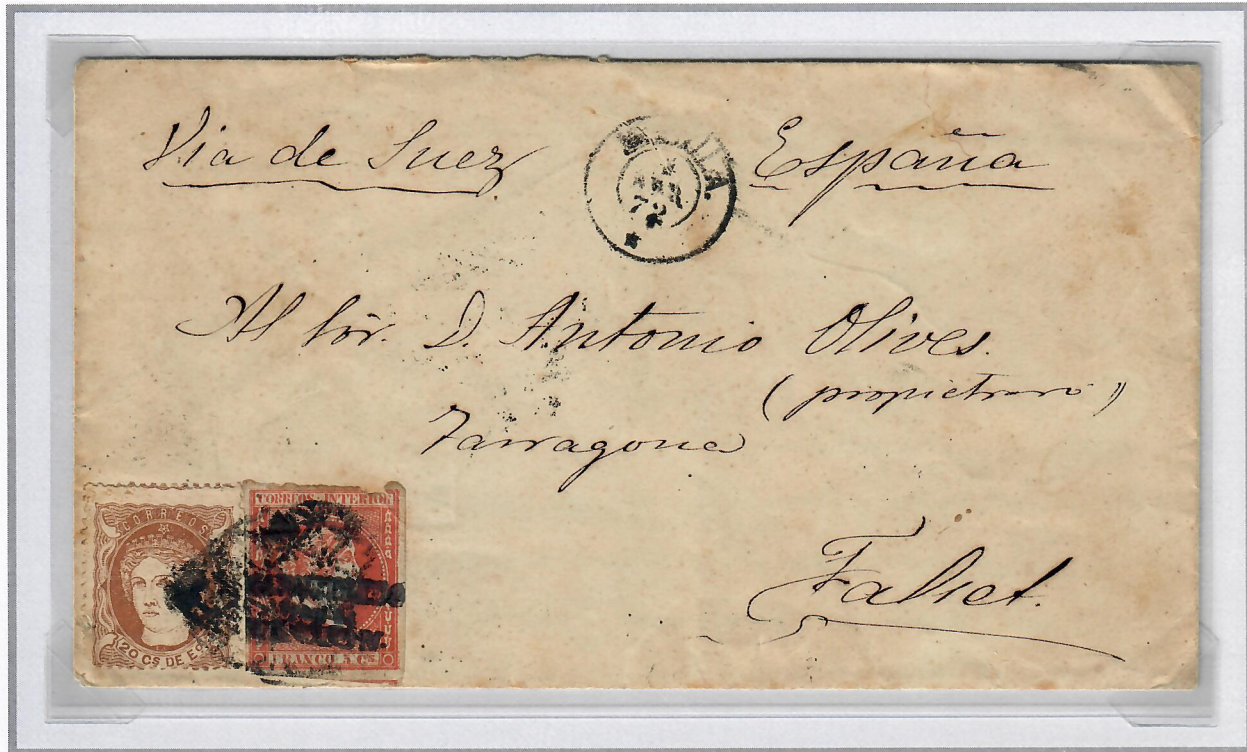 Via de Suez España
72
Al Sör. D. Antonio Olives.
(propietraro)
Tarragona
Falset.
CORREOS
20 CS DE Eº
CORREOS INTERIOR
FRANCO